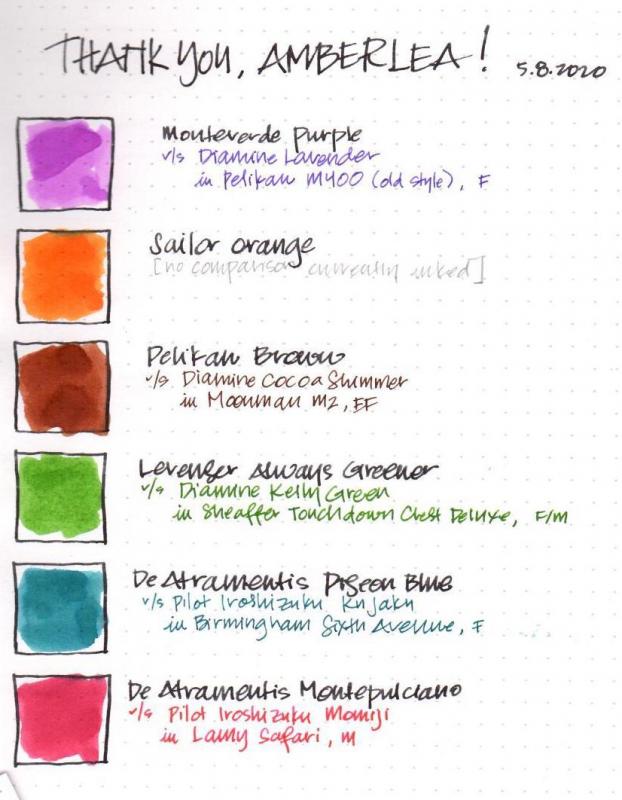 THANK YOU, AMBERLEA! 5.8.2020
Monteverde Purple
v/s Diamine Lavender
in Pelikan M400 (old style), F
Sailor Orange
[no comparison currently inked]
Pelikan Brown
v/s Diamine Cocoa Shimmer
in Moonman M2, EF
Levenger Always Greener
v/s Diamine Kelly Green
in Sheaffer Touchdown Crest Deluxe, F/M
De Atramentis Pigeon Blue
v/s Pilot Iroshizuku Kujaku
in Birmingham Sixth Avenue, F
De Atramentis Montepulciano
v/s Pilot Iroshizuku Momiji
in Lamy Safari, M